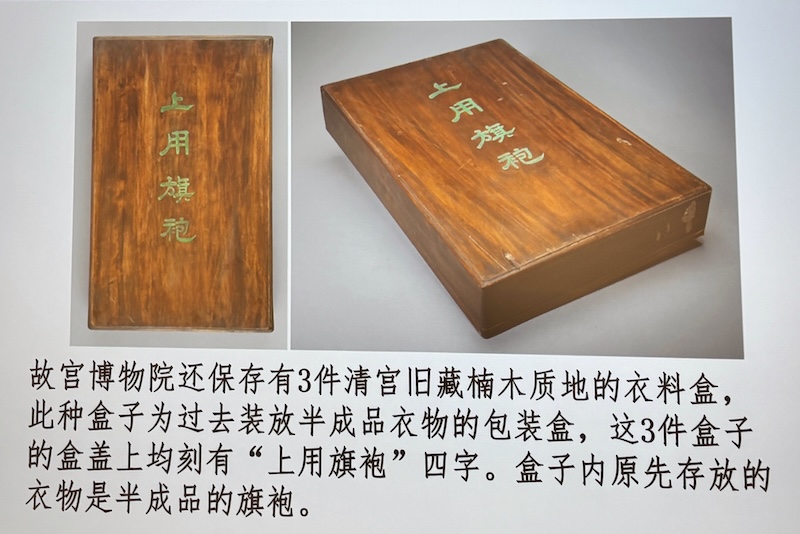 上用旗袍
上用旗袍
故宫博物院还保存有3件清宫旧藏楠木质地的衣料盒，
此种盒子为过去装放半成品衣物的包装盒，这3件盒子
的盒盖上均刻有“上用旗袍”四字。盒子内原先存放的
衣物是半成品的旗袍。